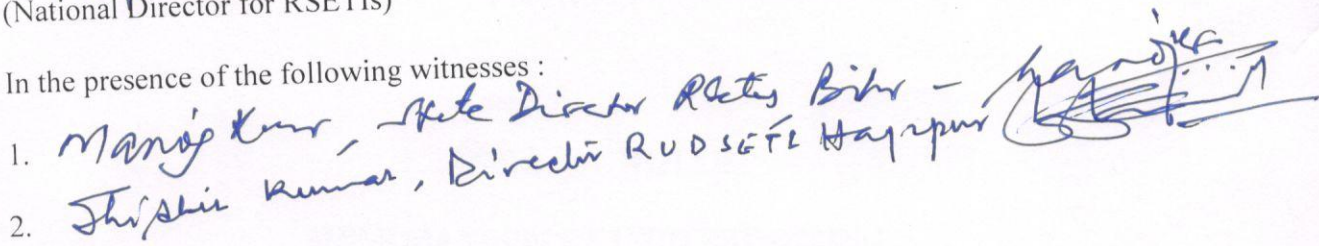 (National Director for RSETIs)
In the presence of the following witnesses :
1. Manoj Kumar, State Director RSETIs Bihar -
2. Shishir Kumar, Director RUDSETI Hajipur